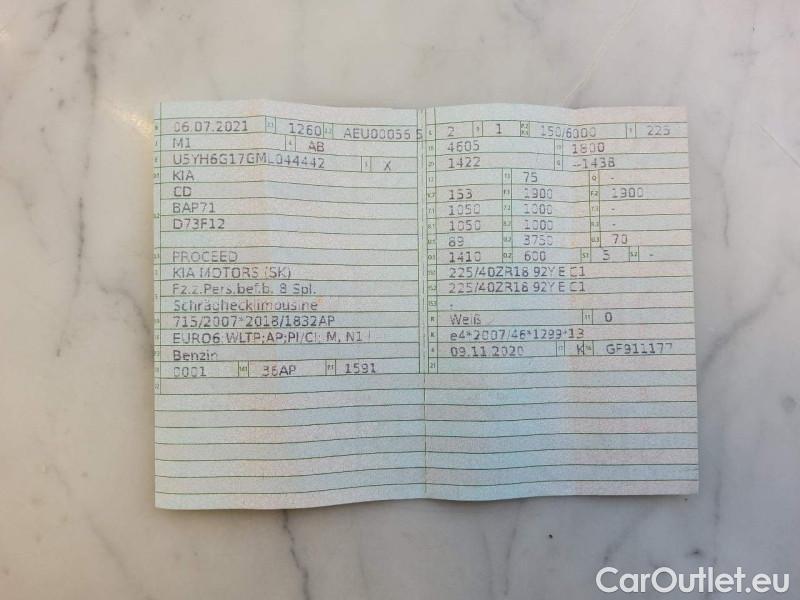 06.07.2021 1260 AEU00056 5
M1 AB
U5YH6G17GML044442 X
KIA
CD
BAP71
D73F12
PROCEED
KIA MOTORS (SK)
Fz.z.Pers.bef.b. 8 Spl.
Schräghecklimousine
715/2007*2018/1832AP
EURO6;WLTP;AP;PI/CI; M, N1 I
Benzin
0001 36AP 1591
2 1 150/6000 225
4605 1800
1422 --1438
75 -
153 1900 1900
1050 1000 -
1050 1000 -
89 3750 70
1410 600 5 -
225/40ZR18 92Y E C1
225/40ZR18 92Y E C1
-
Weiß 0
e4*2007/46*1299*13
09.11.2020 K GF911177
CarOutlet.eu